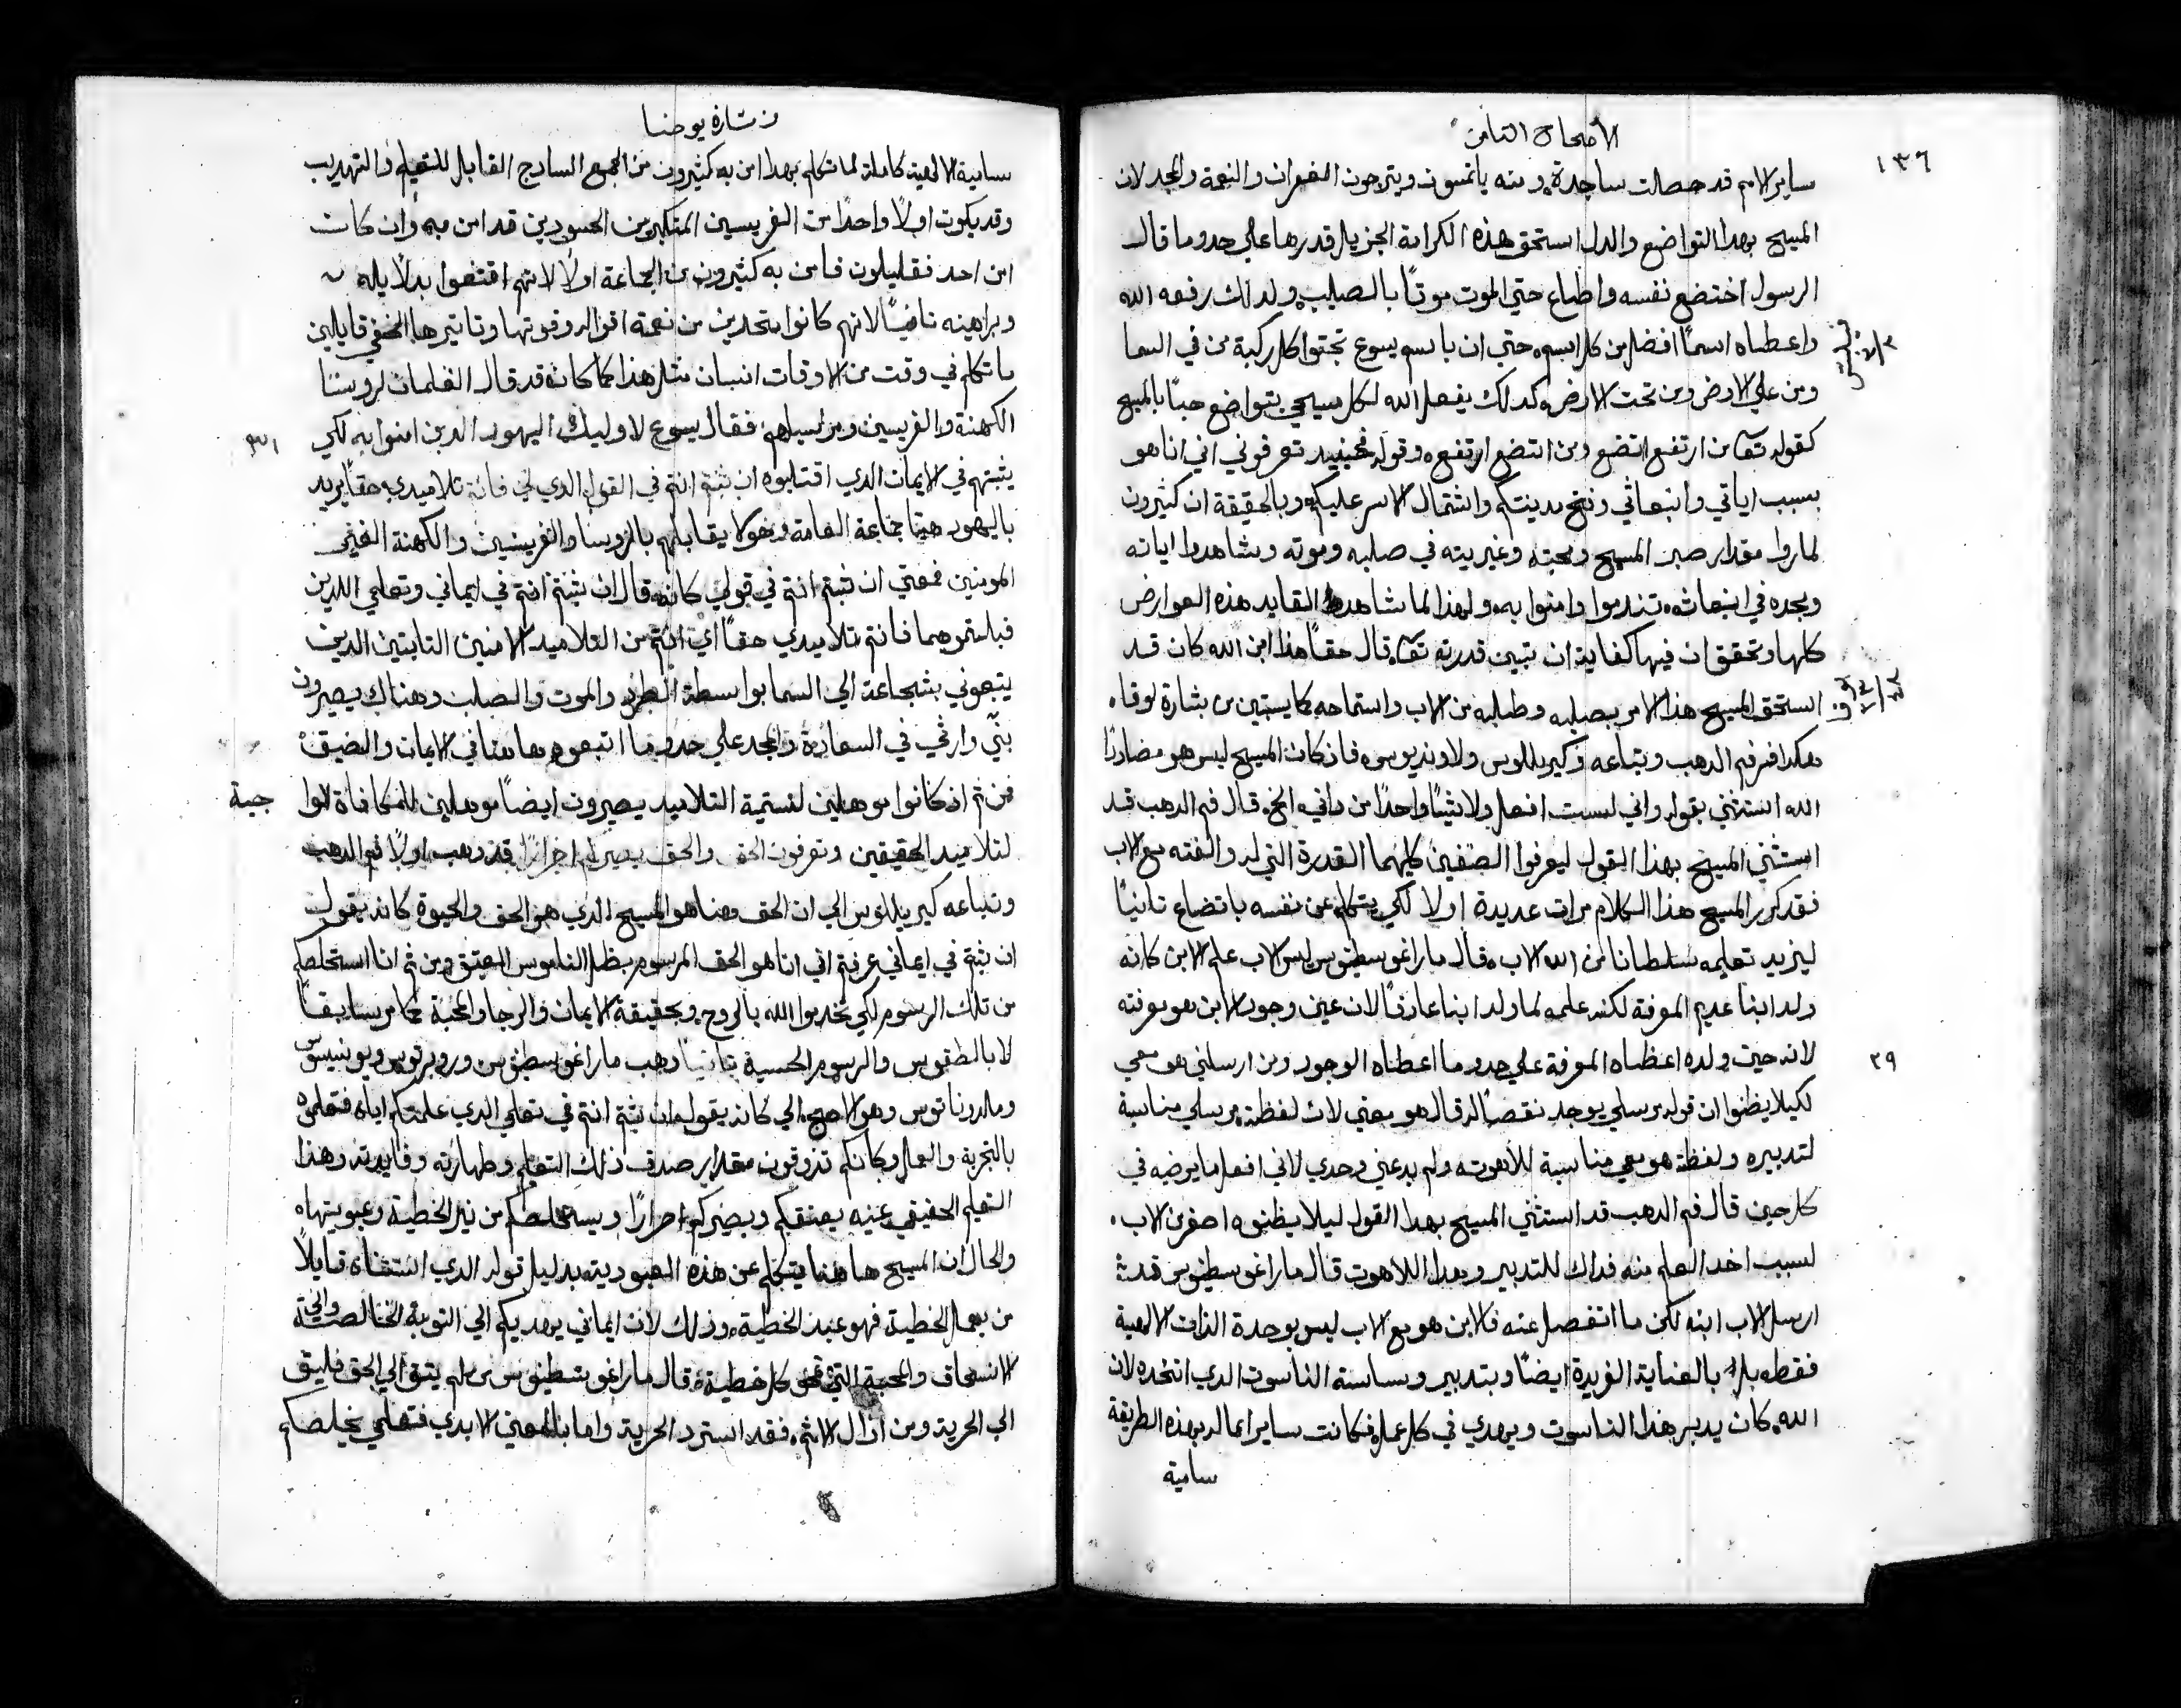 ١٣٦
الأصحاح الثامن
ساير الامم قد حصلت ساجدة ومنه ياتمنون ويترجون الغفران والنعمة والمجد لان
المسيح بهدا التواضع والدل استحق هذه الكرامة الجزيل قدرها علي حدو ما قال
الرسول اختضع نفسه واطاع حتي الموت موتًا بالصليب ولدلك رفعه الله
واعطاه اسمًا افضل من كل اسم حتي ان باسم يسوع تجتوا كل ركبة من في السما
ومن علي الارض ومن تحت الارض كدلك يفعل الله لكل مسيحي يتواضع حبًا بالمسيح
كقوله تعا من ارتفع اتضع ومن اتضع ارتفع وقوله فحينيد تعرفوني اني انا هو
بسبب اياتي وانبعاثي وفتح مدينتكم واشتمال الاسر عليكم وبالحقيقة ان كثيرون
لما روا مقدار صبر المسيح ومحبته وغيريته في صلبه وموته وشاهدوا اياته
ومجده في انبعاثه تندموا وامنوا به ولهذا لما شاهد القايد هذه العوارض
كلها وتحقق ان فيها كفاية ان تبين قدرته تعا قال حقًا هذا ابن الله كان قد
استحق المسيح هذا الامر بصليبه وطلبه من الاب واستماحه كما يستبين من بشارة لوقا
هكدا فسر فم الدهب وتباعه وكيريللوس ولاونديوس فاذ كان المسيح ليس هو مضاددًا
الله استثني بقوله واني لست افعل ولا شيًا واحدًا من داتي الخ قال فم الدهب قد
استثني المسيح بهذا القول ليعرفوا الصنفين كليهما القدرة التي له والفته مع الاب
فقد كرر المسيح هذا الكلام مرات عديدة اولا لكي يتكلم عن نفسه باتضاع تانيًا
ليزيد تعليمه سلطانا من الله الاب قال ماراغوسطينوس ليس الاب علم الابن كانه
ولد ابنا عديم المعرفة لكنه علمه لما ولد ابنا عارفًا لان عين وجود الابن هو معرفته
٢٩
لانه حيت ولده اعطاه المعرفة علي حدو ما اعطاه الوجود ومن ارسلني هو معي
لكيلا يظنوا ان قوله مرسلي يوجد نقصًا له قال هو معي لان لفظة مرسلي مناسبة
لتدبيره ولفظة هو معي مناسبة للاهوته ولم يدعني وحدي لاني افعل ما يرضيه في
كل حين قال فم الدهب قد استثني المسيح بهدا القول ليلا يظنوه اصغر من الاب
لسبب اخد العلم منه فداك للتدبير وهدا اللاهوت قال ماراغوسطينوس قد
ارسل الاب ابنه لكن ما انفصل عنه فالابن هو مع الاب ليس بوحدة الذات الالهية
فقط بل بالعناية الفريدة ايضًا وبتدبير وسياسة الناسوت الدي اتخده لان
الله كان يدبر هذا الناسوت ويهدي في كل عمله فكانت ساير اعماله بهذه الطريقة
سامية
بشارة يوحنا
سامية الالهية كاملة لما تكلم بهدا امن به كثيرون من الجمع السادج القابل للتعليم والتهديب
وقد يكون اولًا واحدًا من الفريسين المتكبرين الحسودين قد امن به وان كان
امن احد فقليلون فامن به كثيرون من الجماعة اولًا لانهم اقتنعوا بدلايله
وبراهينه تانيًا لانهم كانوا متحدين من نعمة اقواله وقوتها وتاتيرها الخفي قايلين
ما تكلم في وقت من الاوقات انسان مثل هذا كما كان قد قال الغلمان لروسا
٣١
الكهنة والفريسين ومرسليهم فقال يسوع لاوليك اليهود الدين امنوا به لكي
يثبتهم في الايمان الدي اقتبلوه ان ثبتم انتم في القول الدي لي فانتم تلاميدي حقًا يريد
باليهود هنا جماعة العامة وهولا يقابلهم بالروسا والفريسين والكهنة الغير
المومنين فمعني ان ثبتم انتم في قولي كانه قال ان ثبتم انتم في ايماني وتعليمي اللدين
قبلتموهما فانتم تلاميدي حقًا اي انتم من التلاميد الامنين التابتين الدين
يتبعوني بشجاعة الي السما بواسطة والموت والصلب وهناك يصيرون
بنيّ وارثي في السعادة والمجد علي حدو ما اتبعوني هاهنا في الايمان والضيق
فمن ثم اذ كانوا موهلين لتسمية التلاميد يصيرون ايضًا موهلين للمكافاة
لتلاميد الحقيقين وتعرفون الحق والحق يصيركم احرارًا قد دهب اولًا فم الدهب
وتباعه كيريللوس الي ان الحق هنا هو المسيح الدي هو الحق والحيوة كانه يقول
ان ثبتم في ايماني عرفتم اني انا هو الحق المرسوم بظل الناموس العتيق ومن ثم انا استخلصكم
من تلك الرسوم لكي تخدموا الله بالروح وبحقيقة الايمان والرجا والمحبة كما مر سابقًا
لا بالطقوس والرسوم الحسية تانيًا دهب ماراغوسطينوس وروبرتوس
ومالدوناتوس وهو الاصح الي كانه يقول ان ثبتم انتم في تعليمي الدي علمتكم اياه فتعلموه
بالتجربة والعمل وكانكم تذوقون مقدار صدق ذلك التعليم وطهارته وفايدته وهذا
التعليم الحقيقي عينه يعتقكم ويصيركم احرارًا ويستخلصكم من نير الخطية وعبوديتها
والحال ان المسيح هاهنا يتكلم عن هذه العبودية بدليل قوله الدي استثناه قايلًا
من يعمل الخطية فهو عبد الخطية وذلك لان ايماني يهديكم الي التوبة الخالصة والي
الانسحاق والمحبة التي تمحو كل خطية قال ماراغوسطينوس من لم يتق الي الحق فليتق
الي الحرية ومن ازال الاثم فقد استرد الحرية واما بالمعني الابدي فتعليمي يخلصكم